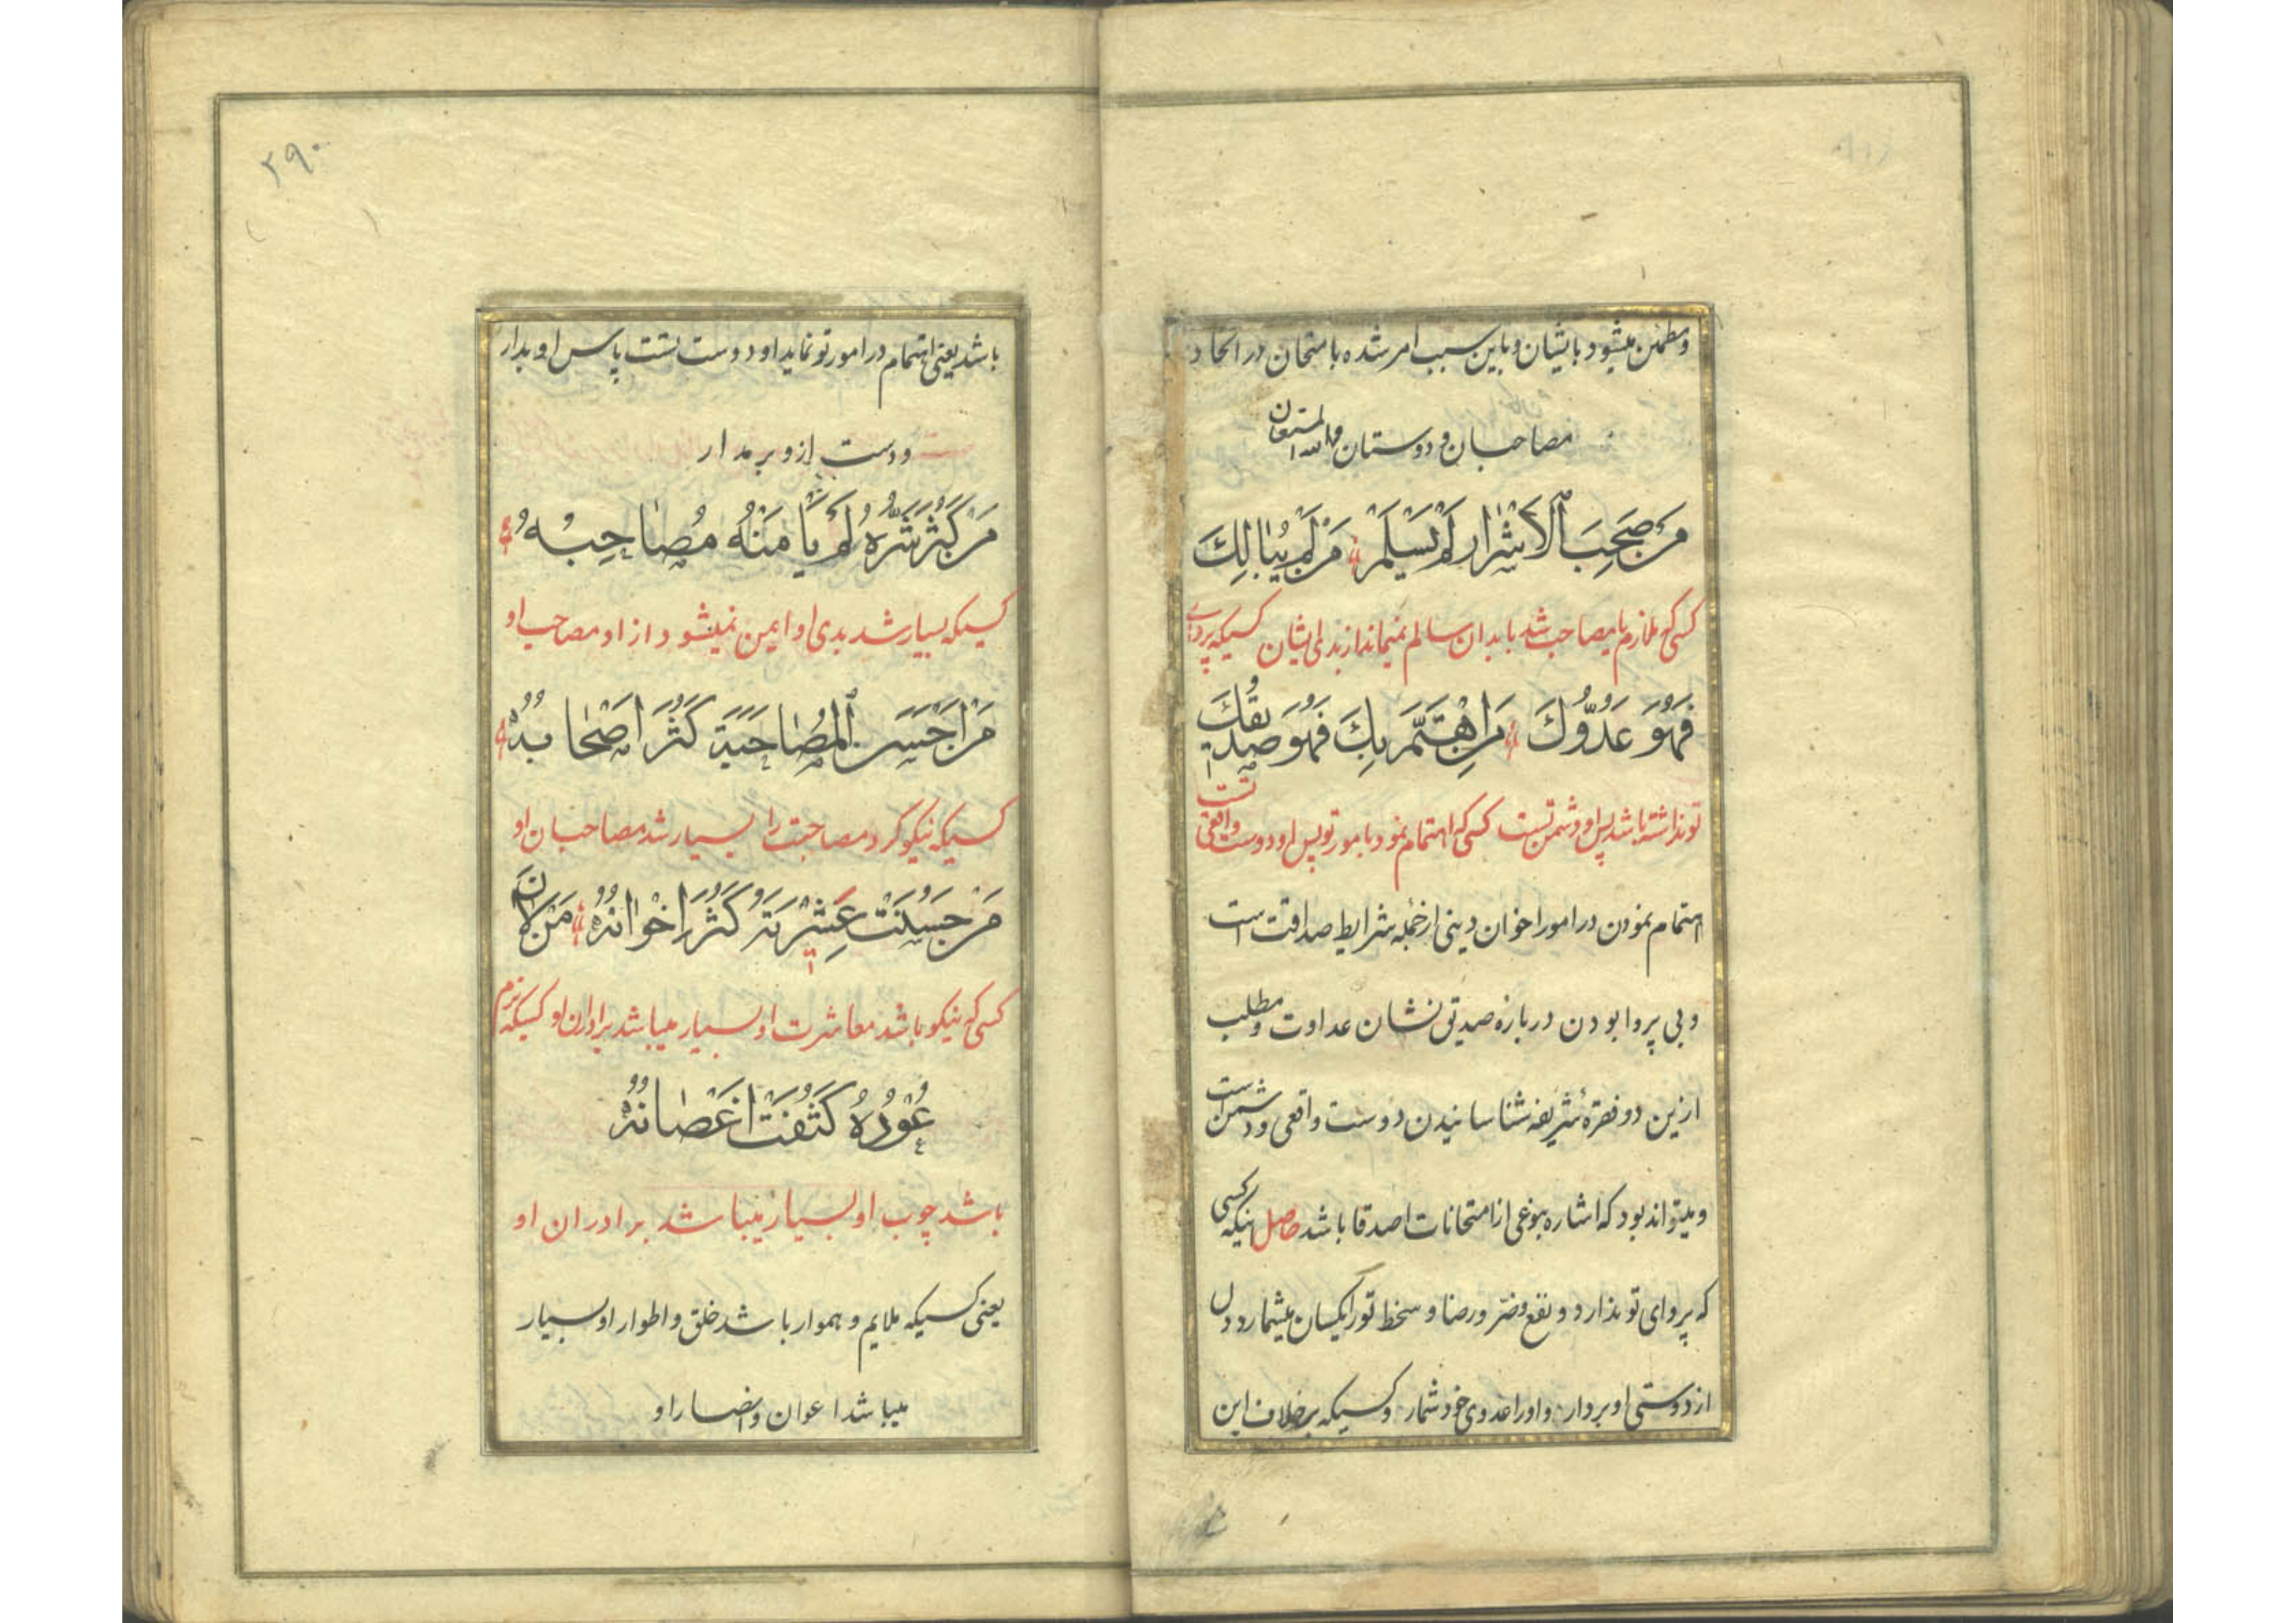 ومطمئن میشود بایشان و باین سبب امر شده بامتحان در اتحاد
مصاحبان و دوستان والله المستعان
مَنْ صَحِبَ الْاَشْرٰارَ لَمْ یَسْلَمْ مَنْ لَمْ یُبٰالِكَ
کسی که ملازم یا مصاحب شد با بدان سالم نمیماند از بدی ایشان کسیکه پروای
فَهُوَ عَدُوُّكَ مَنِ اهْتَمَّ بِكَ فَهُوَ صَدیقُكَ
تو نداشته باشد پس او دشمن تست کسی که اهتمام نمود بامور تو پس او دوست واقعی تست
اهتمام نمودن در امور اخوان دینی از جمله شرایط صداقت است
و بی پروا بودن درباره صدیق نشان عداوت و مطلب
ازین دو فقرهٔ شریفه شناسانیدن دوست واقعی و دشمن است
و میتواند بود که اشاره بنوعی از امتحانات اصدقا باشد حاصل اینکه کسی
که پروای تو ندارد و نفع و ضرّ و رضا و سخط تو را یکسان میشمارد دل
از دوستی او بردار و او را عدوی خود شمار و کسیکه برخلاف این
۲۹۰
باشد یعنی اهتمام در امور تو نماید او دوست تست پاس او بدار
و دست ازو برمدار
مَنْ كَثُرَ شَرُّهُ لَمْ یَأْمَنْهُ مُصٰاحِبُهُ
کسیکه بسیار شد بدی او ایمن نمیشود از او مصاحب او
مَنْ اَحْسَنَ الْمُصٰاحَبَةَ كَثُرَ اَصْحٰابُهُ
کسیکه نیکو کرد مصاحبت را بسیار شد مصاحبان او
مَنْ حَسُنَتْ عِشْرَتُهُ كَثُرَ اِخْوٰانُهُ مَنْ لٰانَ
کسی که نیکو باشد معاشرت او بسیار میباشد برادران او کسیکه نرم
عُوْدُهُ كَثُفَتْ اَغْصٰانُهُ
باشد چوب او بسیار میباشد برادران او
یعنی کسیکه ملایم و هموار باشد خلق و اطوار او بسیار
میباشد اعوان و انصار او